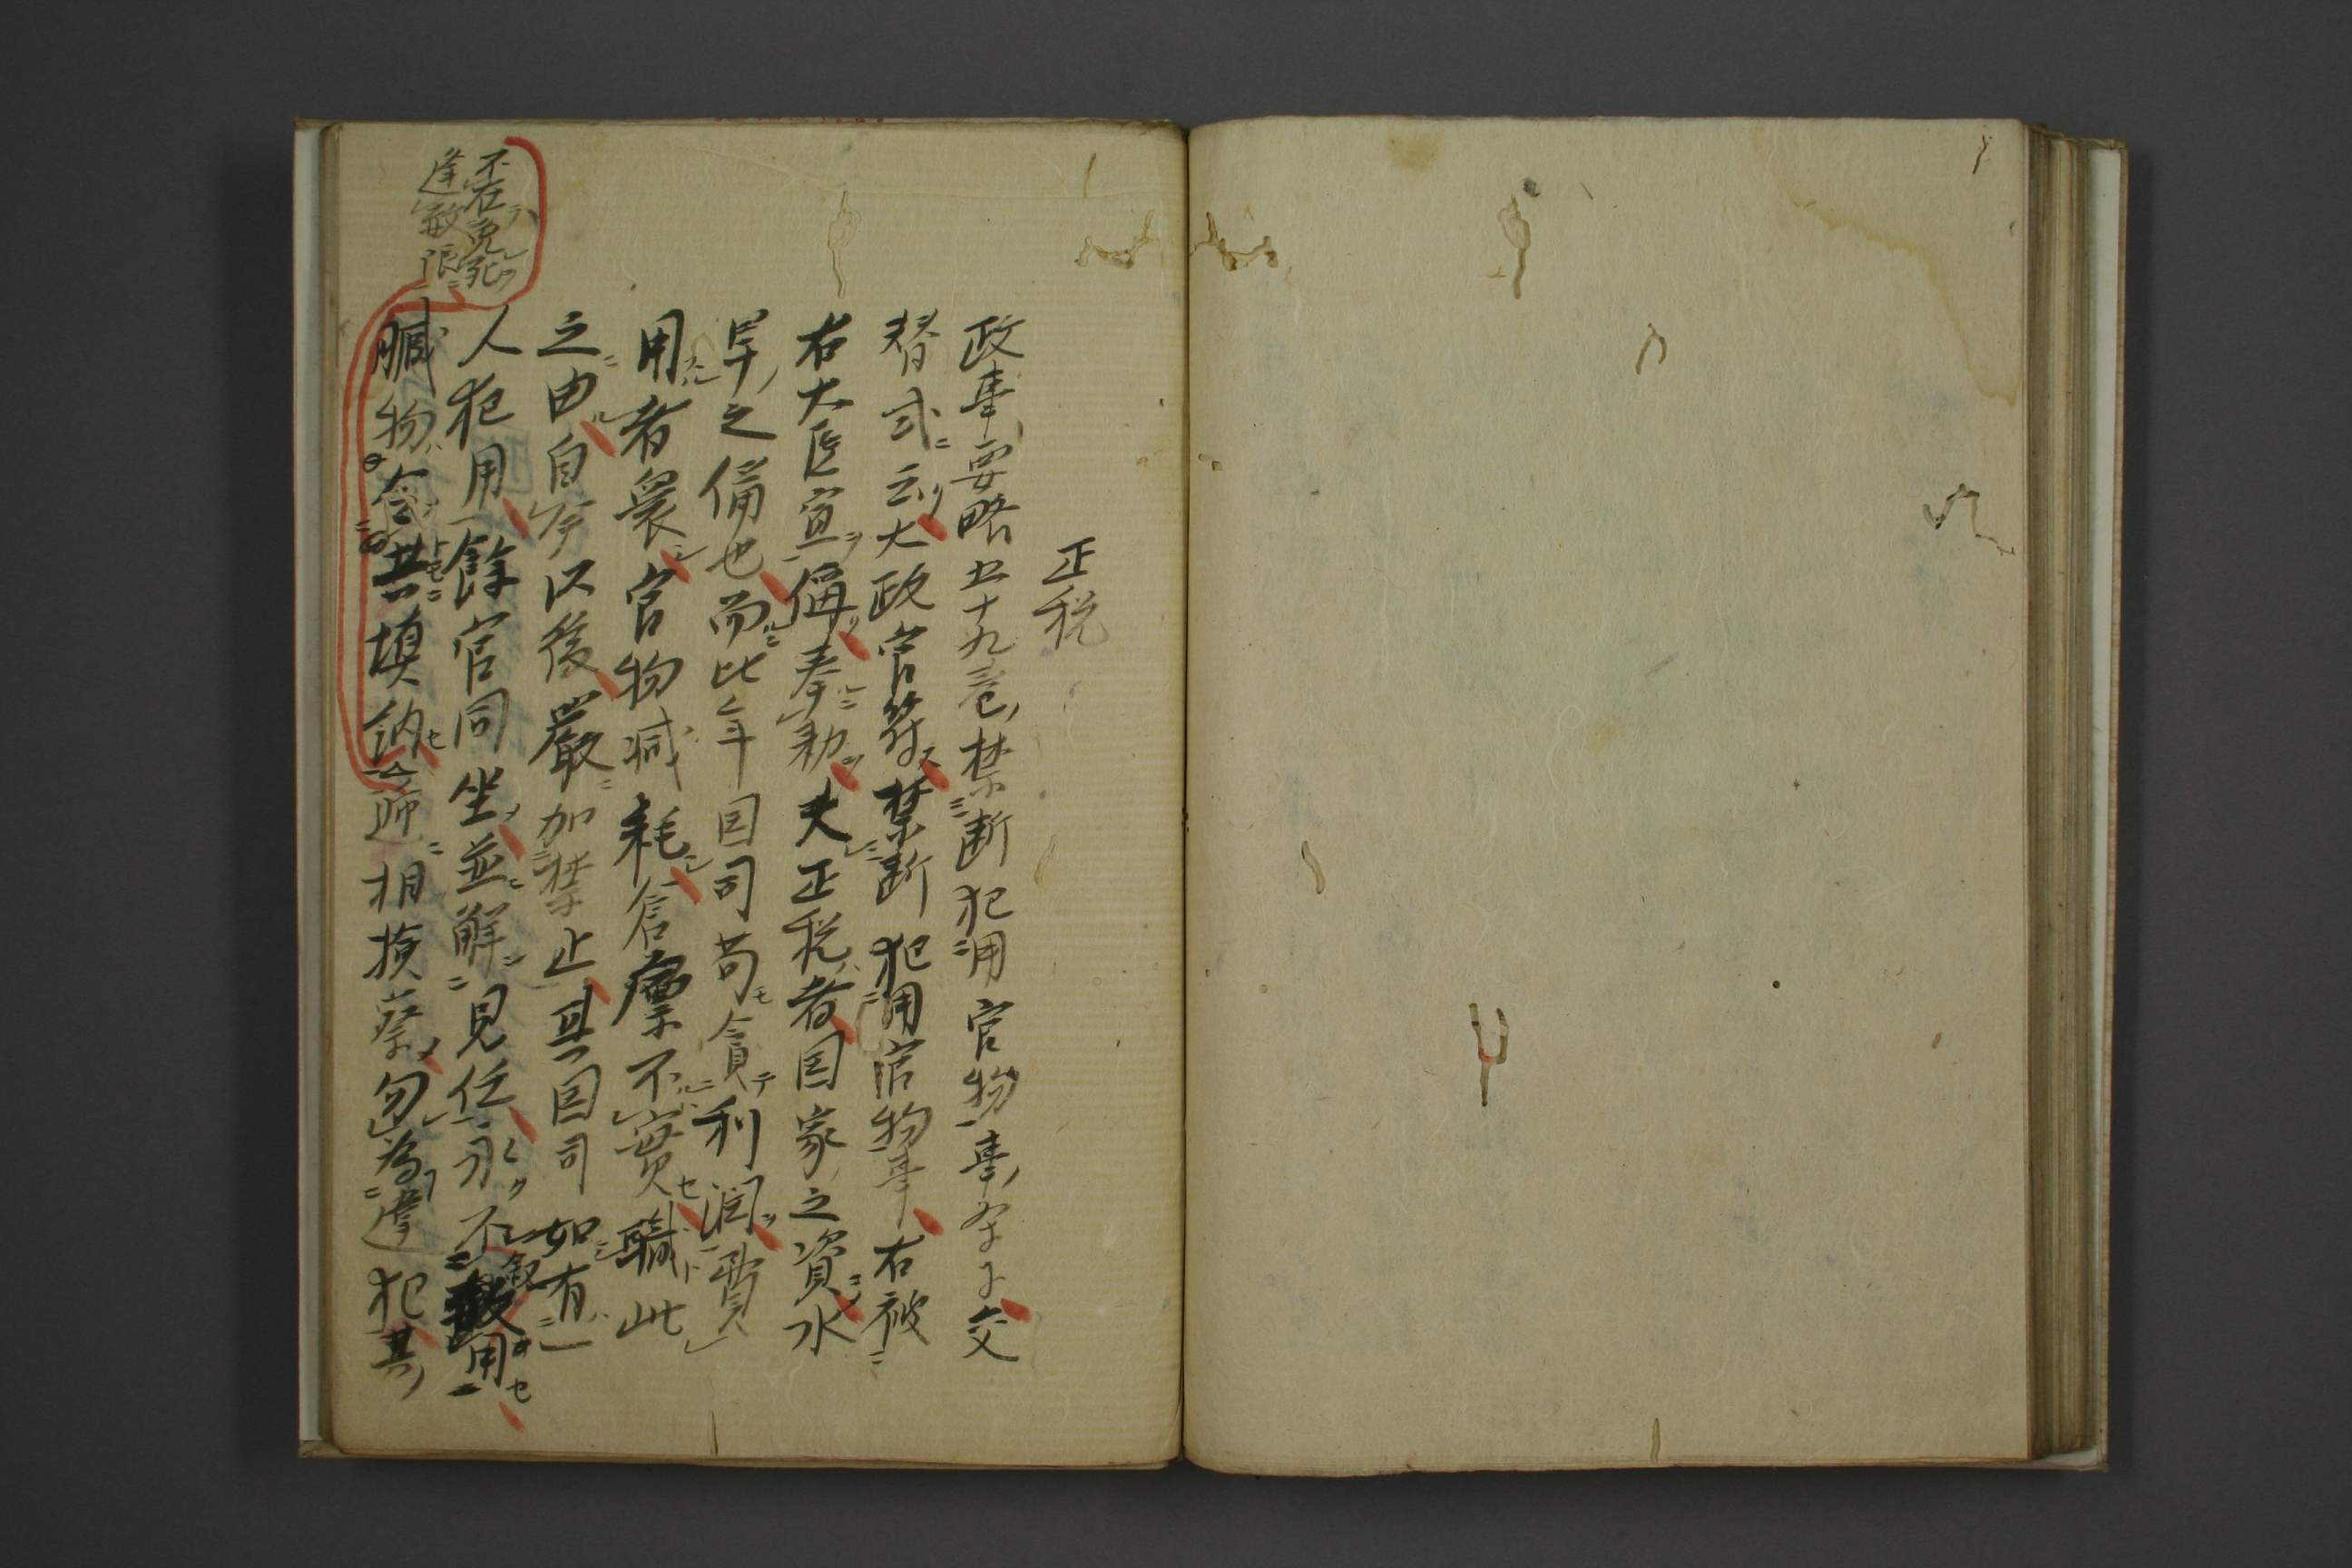 正税
政事要略五十九巻禁断犯用官物事 交
替式云大政官符禁断犯用官物事右被
右大臣宣偁奉勅夫正税者国家之資水
旱之備也而比年国司苟貪利潤費
用者衆官物減耗倉廪不実職此
之由自今以後厳加禁止其国司如有一
人犯用餘官同坐並解見任永不叙用
贓物令共填納
不在免死
逢赦限
逓相検察勿為違犯其